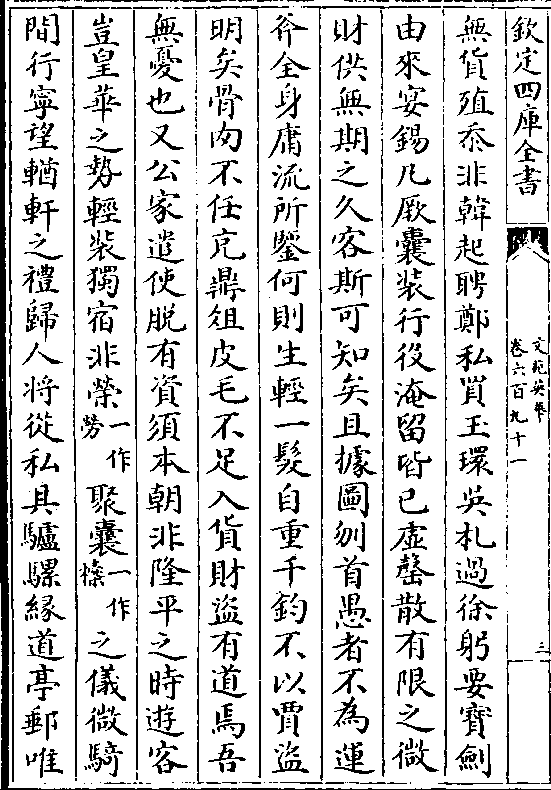 欽定四庫全書
文苑英華
卷六百九十一
三
無貨殖忝非韓起聘鄭私買玉環吳札過徐躬要寶劍
由來宴錫凡厥囊装行役淹留皆已虚罄散有限之微
財供無期之久客斯可知矣且據圖刎首愚者不為運
斧全身庸流所鑒何則生輕一髮自重千鈞不以賈盜
明矣骨肉不任充鼎俎皮毛不足入貨財盜有道焉吾
無憂也又公家遣使脱有資須本朝非隆平之時遊客
豈皇華之勢輕装獨宿非榮一作勞聚橐一作㯱之儀微騎
間行寧望輶軒之禮歸人將從私具驢騾緣道亭郵唯